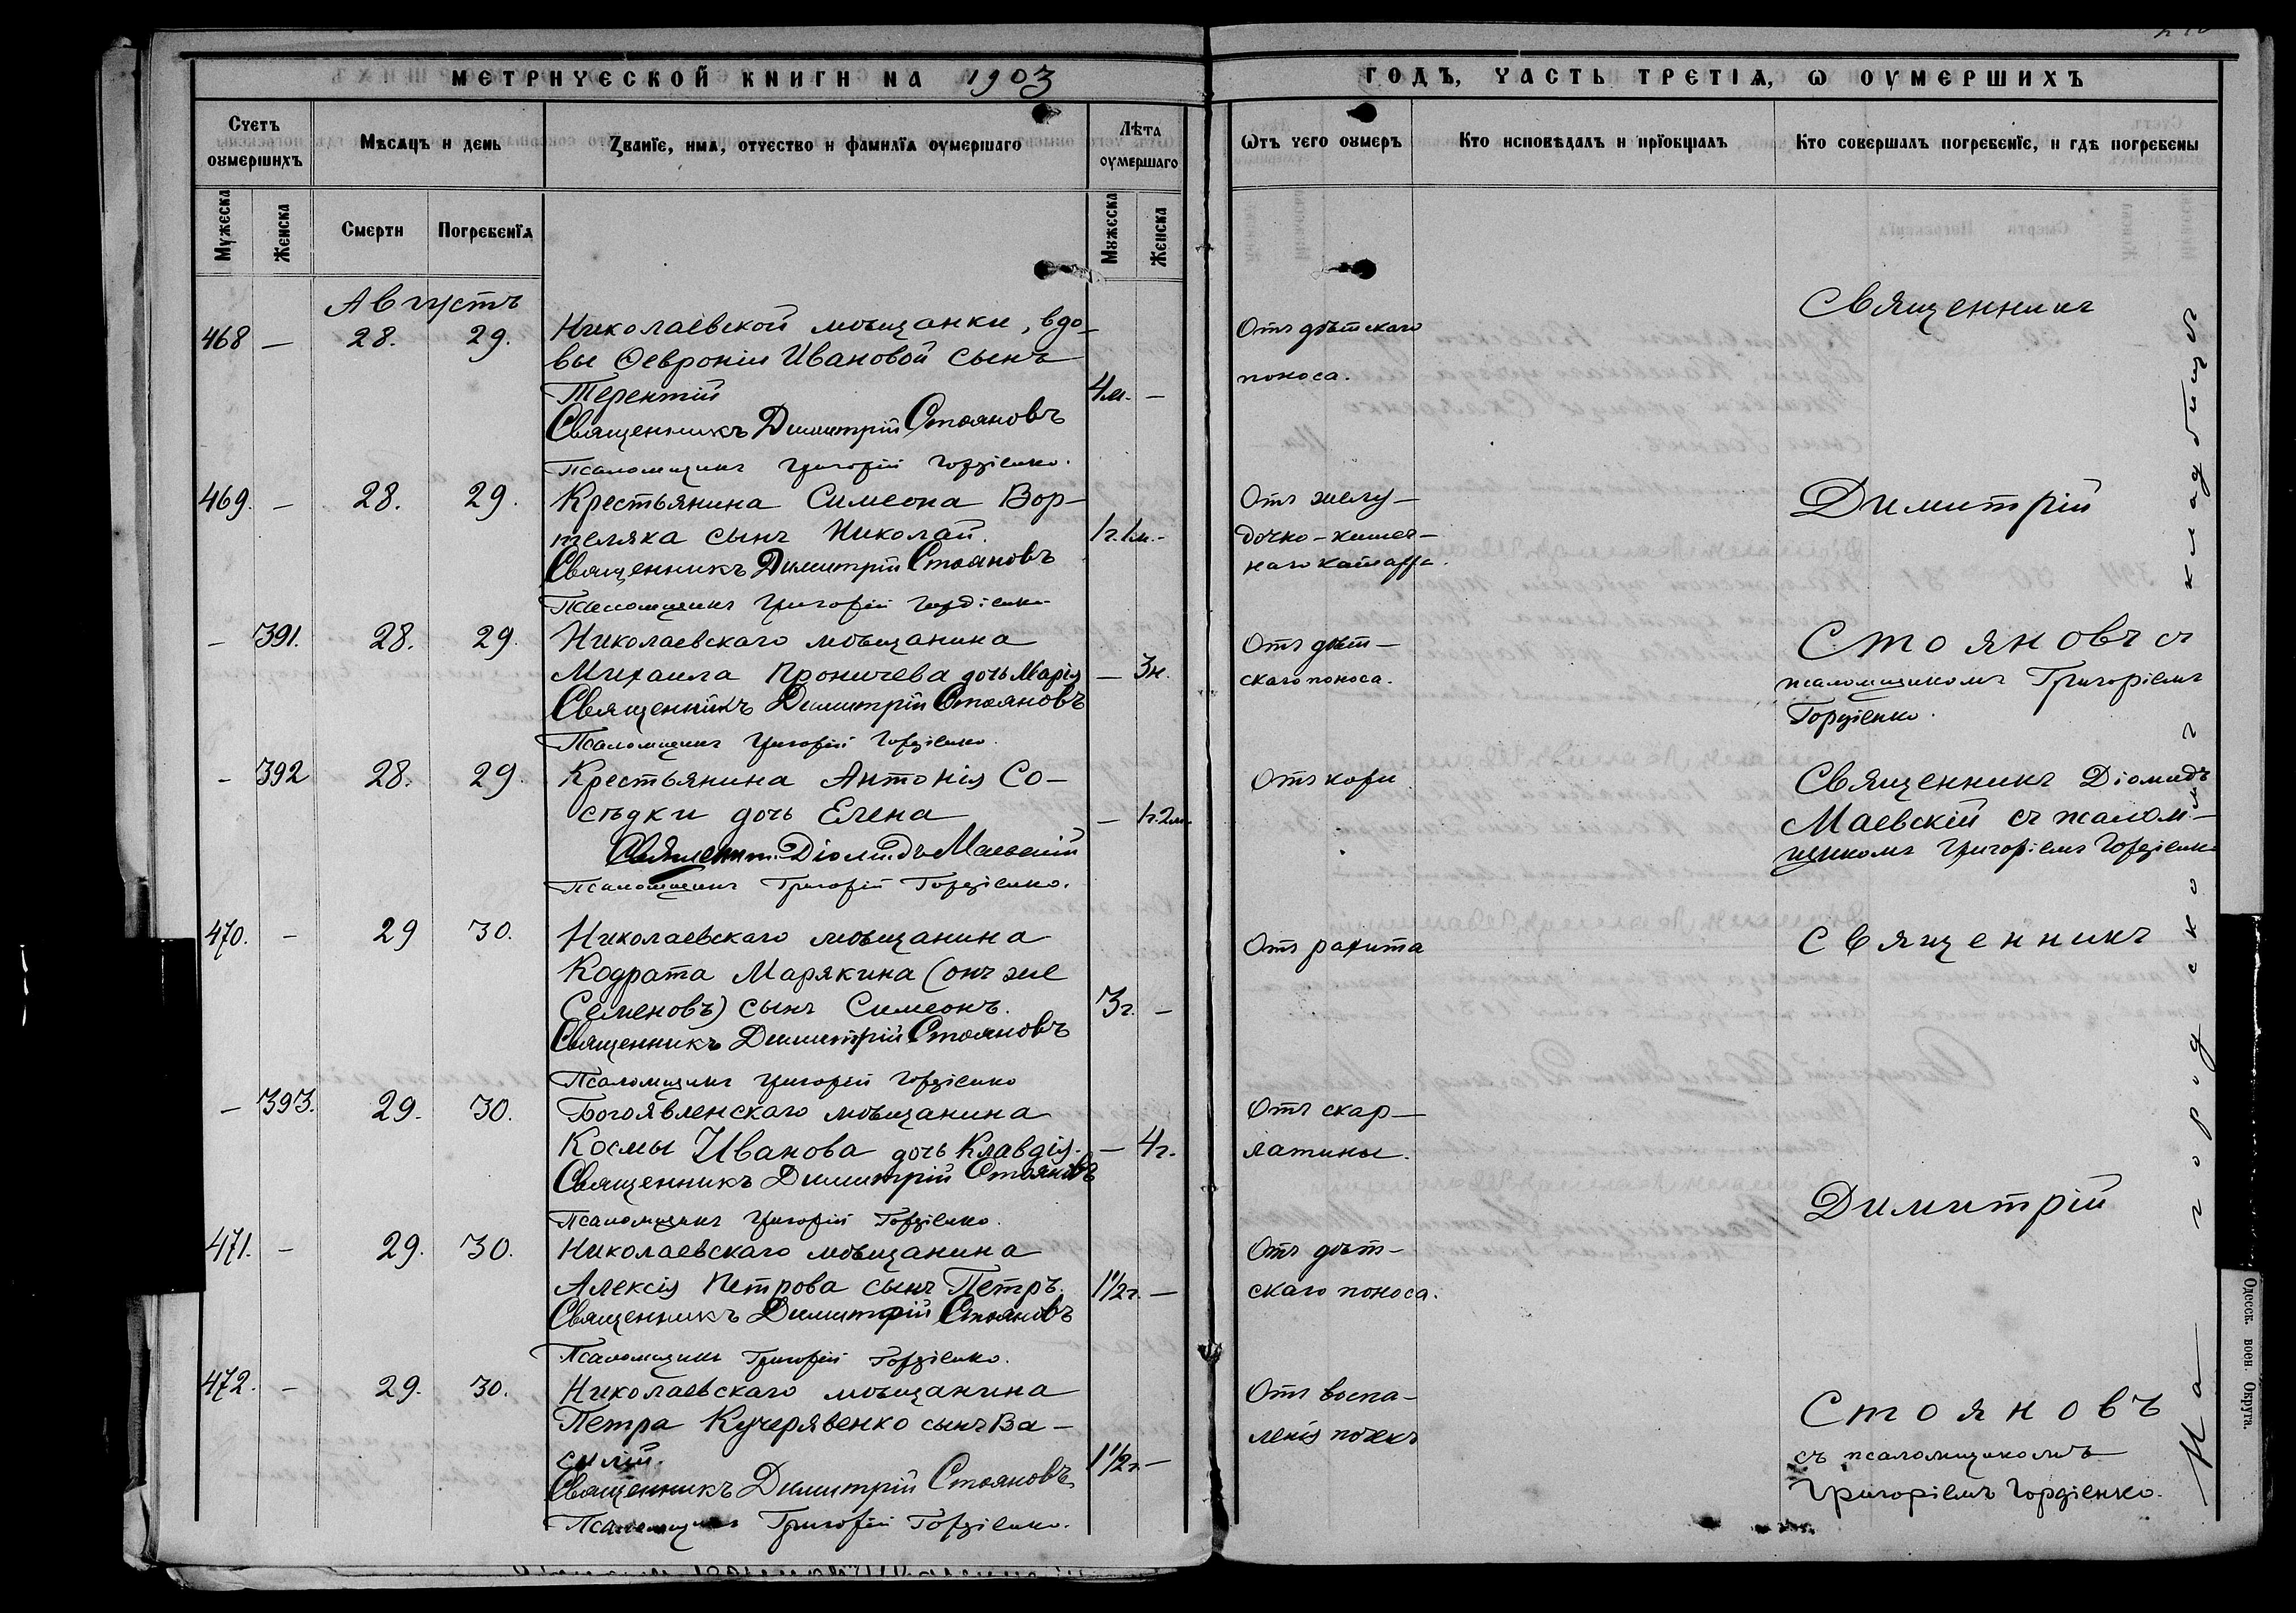 МЕТРИЧЕСКОЙ КНИГИ НА 1903
Счетъ оумершихъ
Мѣсяцъ и день
Званіе, имя, отчество и фамилія оумершаго
Лѣта оумершаго
Мужеска
Женска
Смерти
Погребенія
Мужеска
Женска
Августъ
468 — 28. 29. Николаевской мѣщанки, вдо-
вы Ѳевроніи Ивановой сынъ
Терентій 4м. —
Священникъ Димитрій Стояновъ
Псаломщикъ Григорій Гордіенко.
469. — 28. 29. Крестьянина Симеона Вор-
теляка сынъ Николай. 1г.1м. -
Священникъ Димитрій Стояновъ
Псаломщикъ Григорій Гордіенко
— 391. 28. 29. Николаевскаго мѣщанина
Михаила Проничева дочь Марія — 3н.
Священникъ Димитрій Стояновъ
Псаломщикъ Григорій Гордіенко.
— 392 28. 29. Крестьянина Антонія Со-
сѣдки дочь Елена — 1г.2м.
Священ. Діомидъ Маевскій
Псаломщикъ Григорій Гордіенко.
470. — 29 30. Николаевскаго мѣщанина
Кодрата Марякина (онъ же
Семеновъ) сынъ Симеонъ. 3г. —
Священникъ Димитрій Стояновъ
Псаломщикъ Григорій Гордіенко
— 393. 29. 30. Богоявленскаго мѣщанина
Космы Иванова дочь Клавдія. — 4г.
Священникъ Димитрій Стояновъ
Псаломщикъ Григорій Гордіенко.
471. — 29. 30. Николаевскаго мѣщанина
Алексія Петрова сынъ Петръ. 1 1/2г. —
Священникъ Димитрій Стояновъ
Псаломщикъ Григорій Гордіенко.
472. — 29. 30. Николаевскаго мѣщанина
Петра Кучерявенко сынъ Ва-
силій. 1 1/2г. —
Священникъ Димитрій Стояновъ
Псаломщикъ Григорій Гордіенко.
ГОДЪ, ЧАСТЬ ТРЕТІЯ, Ѡ ОУМЕРШИХЪ
Ѿтъ чего оумеръ
Кто исповѣдалъ и пріобщалъ
Кто совершалъ погребеніе, и гдѣ погребены
Отъ дѣтскаго
поноса.
Отъ желу-
дочно-кишеч-
наго катарра.
Отъ дѣт-
скаго поноса.
Отъ кори
Отъ рахита
Отъ скар-
латины.
Отъ дѣт-
скаго поноса.
Отъ воспа-
ленія почекъ
Священникъ
Димитрій
Стояновъ съ
псаломщикомъ Григоріемъ
Гордіенко.
Священникъ Діомидъ
Маевскій съ псалом-
щикомъ Григоріемъ Гордіенко
Священникъ
Димитрій
Стояновъ
съ псаломщикомъ
Григоріемъ Гордіенко.
На городскомъ кладбищѣ
Одесск. воен. Округа.